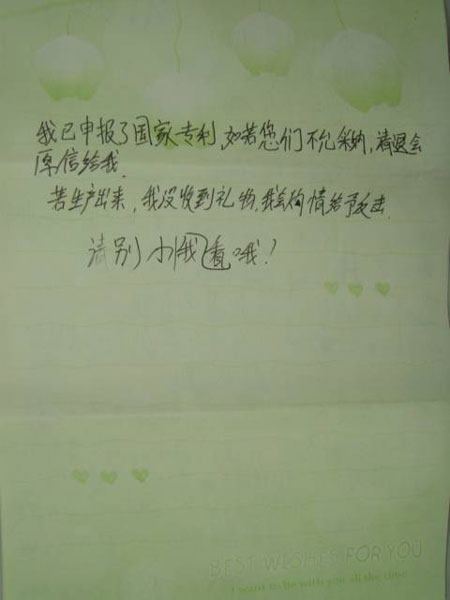 我已申报了国家专利,如若您们不允采纳,请退会
厚信给我.
若生产出来,我没收到礼物.我会构情给予反击.
请别小我看哦!
BEST WISHES FOR YOU
I want to be with you all the time